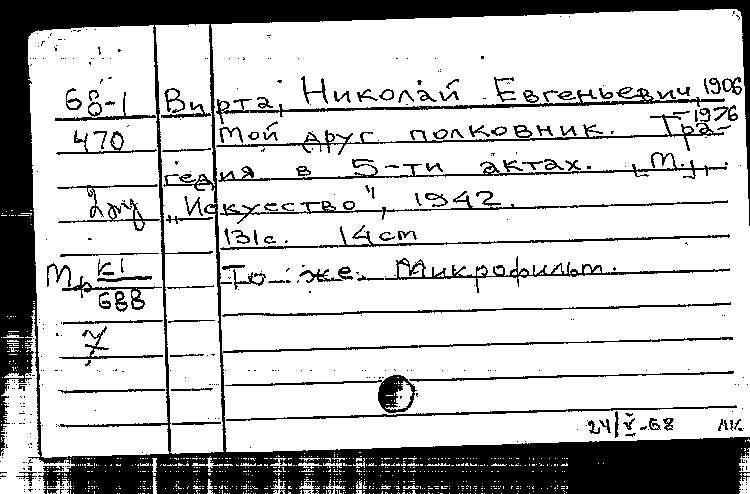 68-1 Вирта, Николай Евгеньевич, 1906
-1976
470 Мой друг полковник. Тра-
гедия в 5-ти актах. М.,
2 экз „Искусство", 1942.
131с. 14см
Мф К1 То же. Микрофильм.
688
7
24/V-68 ЛК